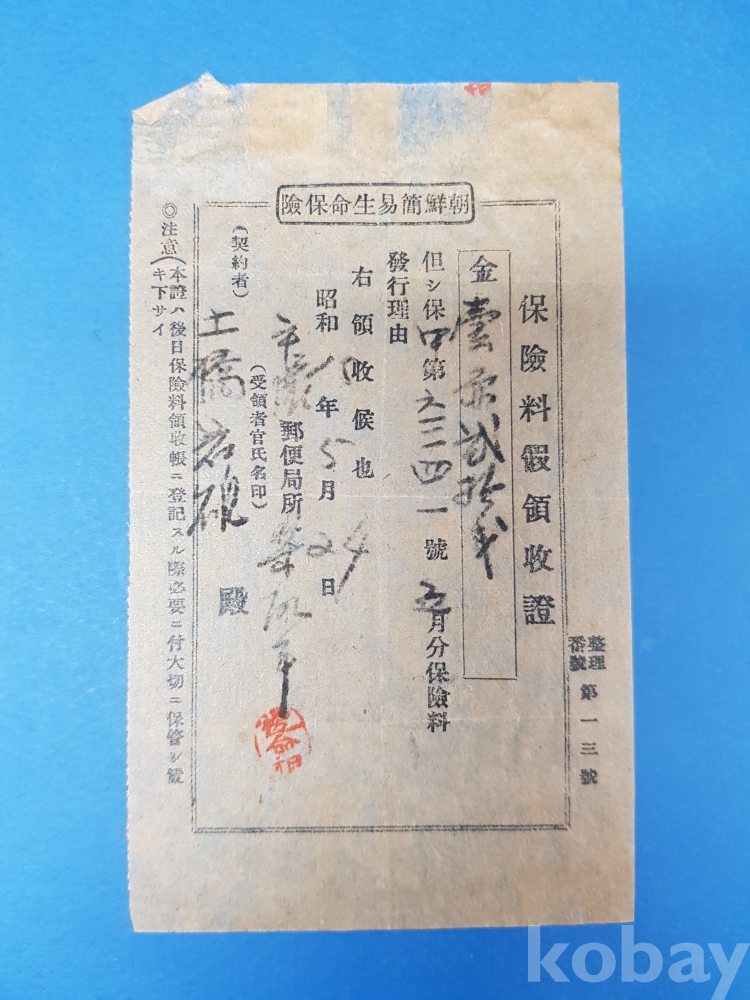 朝鮮簡易生命保險
保險料假領收證
金壹圓貳拾錢
但シ保 第 三四一號 五月分保險料
發行理由
右領收候也
昭和10年5月24日
郵便局所
(受領者官氏名印)
(契約者)
土橋岩 殿
◎注意(本證ハ後日保險料領收帳ニ登記スル際必要ニ付大切ニ保管シ置
キ下サイ
整理
番號 第一三號
kobay